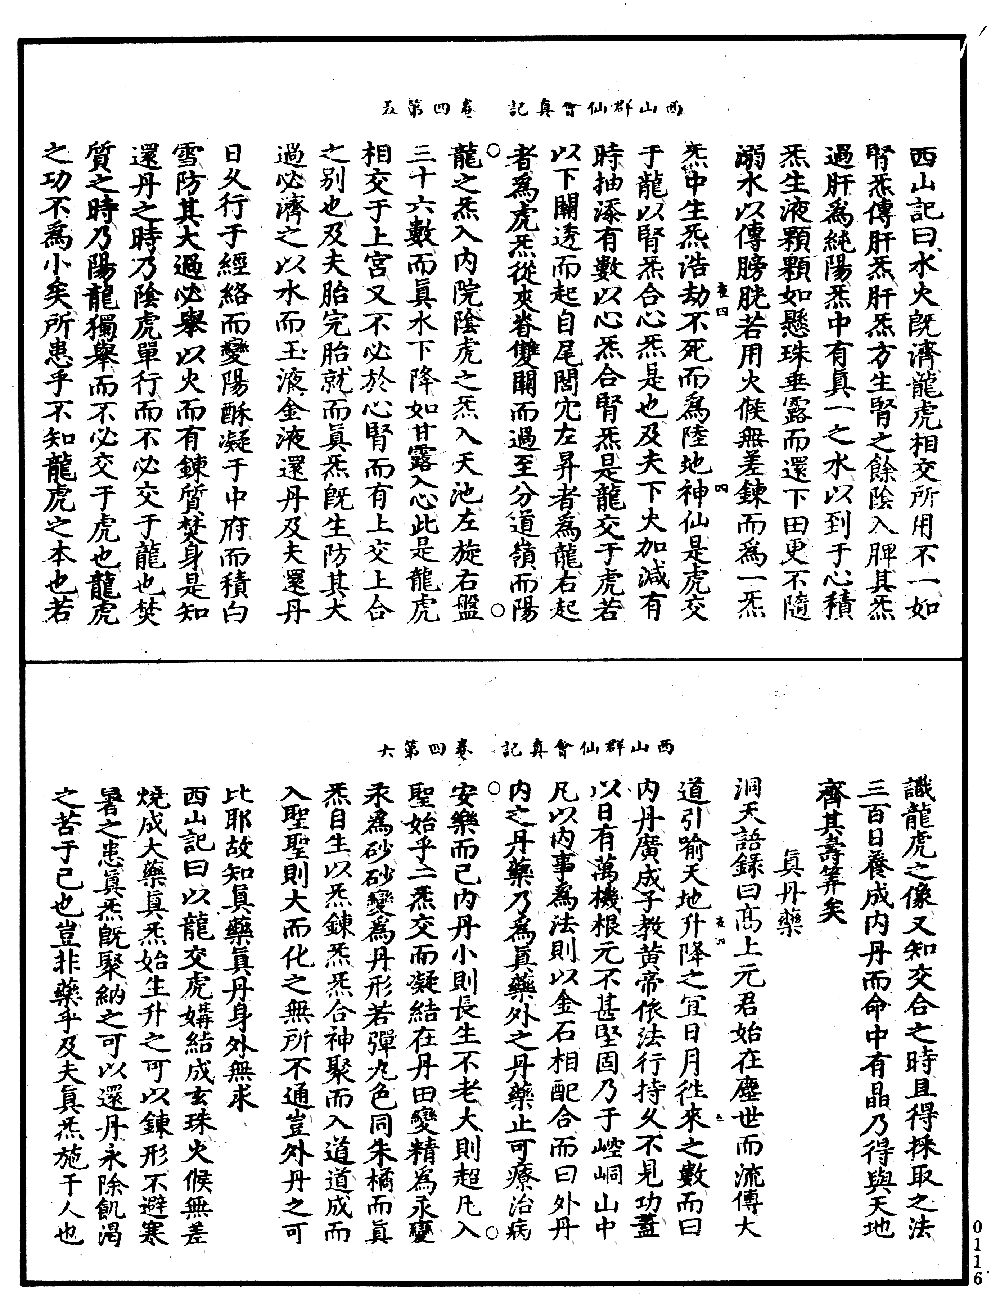 西山群仙會真記　卷四第五
西山記曰水火旣濟龍虎相交所用不一如
腎炁傳肝炁肝炁方生腎之餘陰入脾其炁
過肝爲純陽炁中有真一之水以到于心積
炁生液顆顆如懸珠垂露而還下田更不隨
溺水以傳膀胱若用火候無差鍊而爲一炁
炁中生炁浩劫不死而爲陸地神仙是虎交
于龍以腎炁合心炁是也及夫下火加減有
時抽添有數以心炁合腎炁是龍交于虎若
以下關透而起自尾閭穴左昇者爲龍右起
者爲虎炁從夾脊雙關而過至分道嶺而陽
龍之炁入內院陰虎之炁入天池左旋右盤
三十六數而真水下降如甘露入心此是龍虎
相交于上宮又不必於心腎而有上交上合
之別也及夫胎完胎就而真炁旣生防其大
過必濟之以水而玉液金液還丹及夫還丹
日久行于經絡而變陽酥凝于中府而積白
雪防其大過必舉以火而有鍊質焚身是知
還丹之時乃陰虎單行而不必交于龍也焚
質之時乃陽龍獨舉而不必交于虎也龍虎
之功不爲小矣所患乎不知龍虎之本也若
西山群仙會真記　卷四第六
識龍虎之像又知交合之時且得採取之法
三百日養成內丹而命中有晶乃得與天地
齊其壽筭矣
真丹藥
洞天語錄曰高上元君始在塵世而流傳大
道引喻天地升降之宜日月徃來之數而曰
內丹廣成子教黄帝依法行持久不見功蓋
以日有萬機根元不甚堅固乃于崆峒山中
凡以內事爲法則以金石相配合而曰外丹
內之丹藥乃爲真藥外之丹藥止可療治病
安樂而已內丹小則長生不老大則超凡入
聖始乎二炁交而凝結在丹田變精爲汞變
汞爲砂砂變爲丹形若彈丸色同朱橘而真
炁自生以炁鍊炁炁合神聚而入道道成而
入聖聖則大而化之無所不通豈外丹之可
比耶故知真藥真丹身外無求
西山記曰以龍交虎媾結成玄珠火候無差
燒成大藥真炁始生升之可以鍊形不避寒
暑之患真炁旣聚納之可以還丹永除飢渴
之苦于己也豈非藥乎及夫真炁施于人也
0116